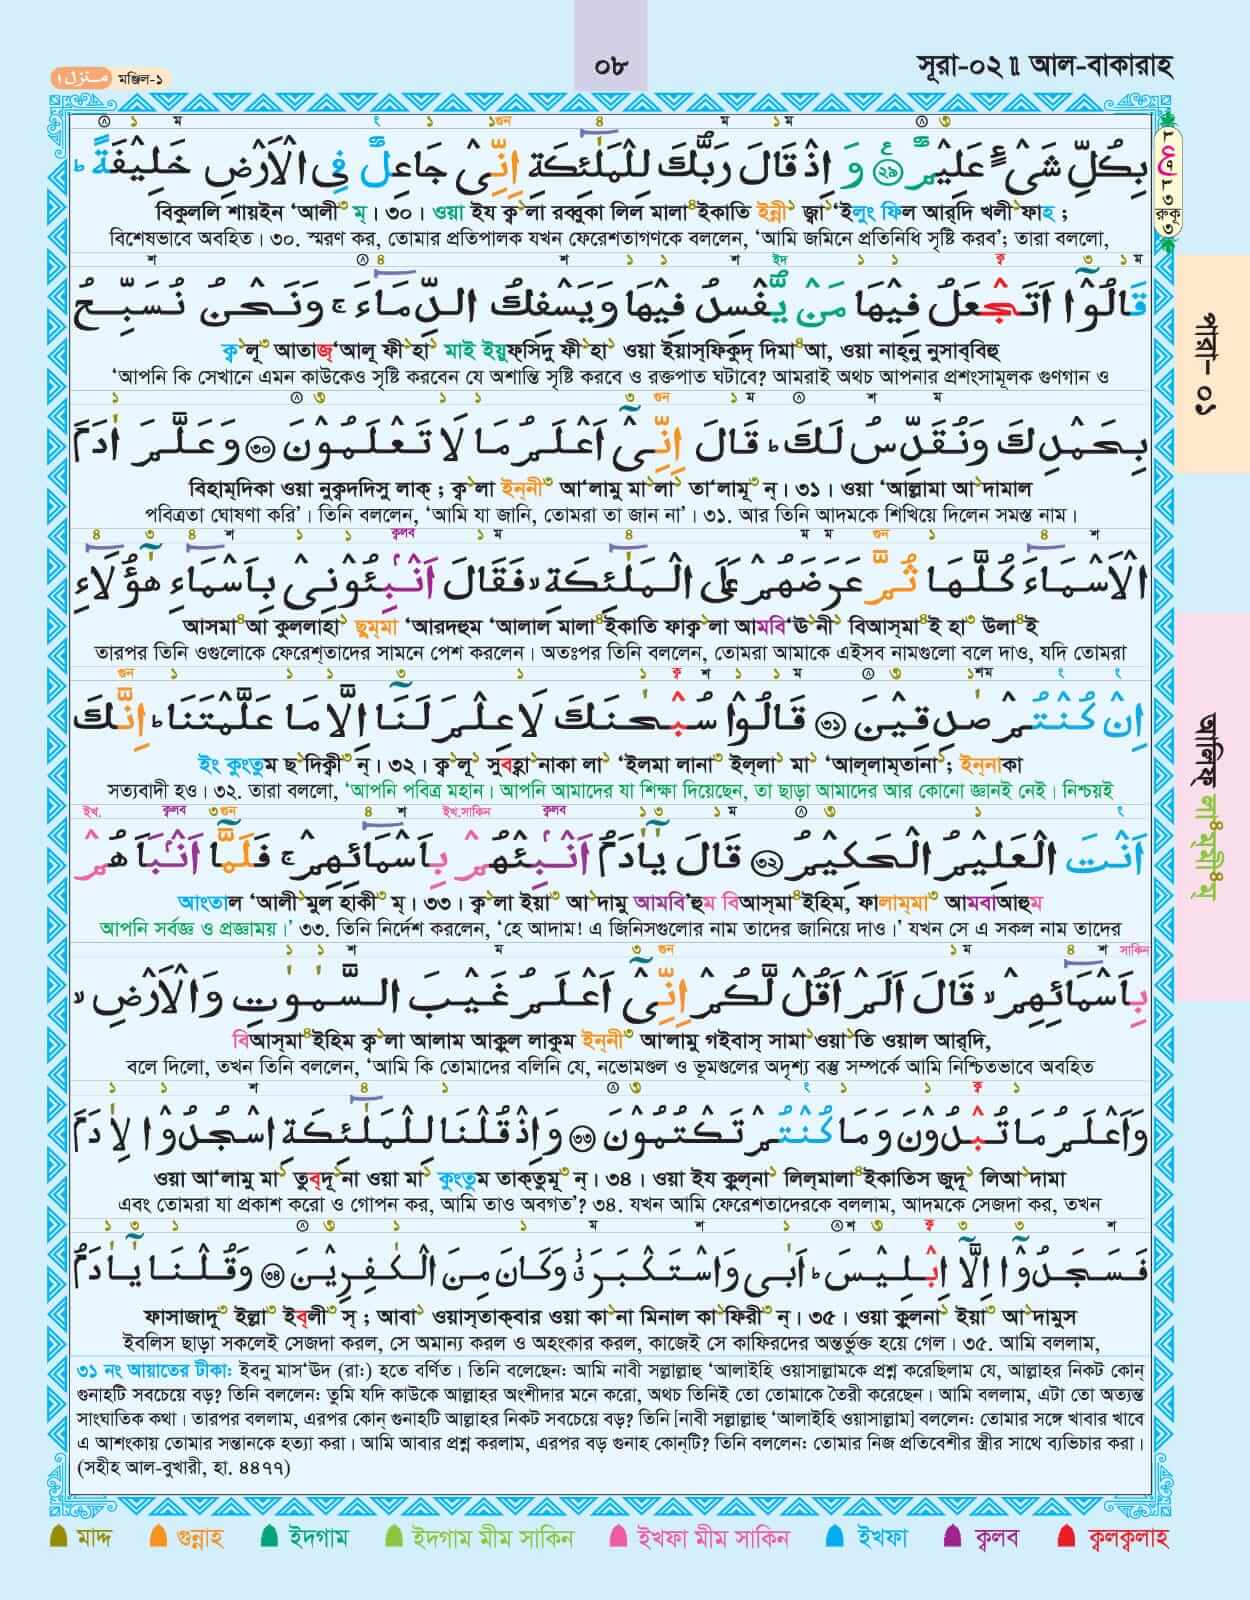 منزل ١ মঞ্জিল-১
০৮
সূরা-০২ ॥ আল-বাকারাহ
بِكُلِّ شَىْءٍ عَلِيْمٌ ﴿٢٩﴾ وَ اِذْ قَالَ رَبُّكَ لِلْمَلٰٓئِكَةِ اِنِّىْ جَاعِلٌ فِى الْاَرْضِ خَلِيْفَةً ؕ
বিকুললি শায়ইন ‘আলী৩ ম্। ৩০। ওয়া ইয ক্ব১লা রব্বুকা লিল মালা৪ইকাতি ইন্নী১ জ্বা১‘ইলুং ফিল আর্‌দি খলী১ফাহ ;
বিশেষভাবে অবহিত। ৩০. স্মরণ কর, তোমার প্রতিপালক যখন ফেরেশতাগণকে বললেন, ‘আমি জমিনে প্রতিনিধি সৃষ্টি করব’; তারা বললো,
قَالُوْٓا اَتَجْعَلُ فِيْهَا مَنْ يُّفْسِدُ فِيْهَا وَيَسْفِكُ الدِّمَآءَ ۚ وَنَحْنُ نُسَبِّحُ
ক্ব১লূ৩ আতাজ্‘আলূ ফী১হা১ মাই ইয়ুফ্‌সিদু ফী১হা১ ওয়া ইয়াস্‌ফিকুদ্ দিমা৪আ, ওয়া নাহ্‌নু নুসাব্‌বিহু
‘আপনি কি সেখানে এমন কাউকেও সৃষ্টি করবেন যে অশান্তি সৃষ্টি করবে ও রক্তপাত ঘটাবে? আমরাই অথচ আপনার প্রশংসামূলক গুণগান ও
بِحَمْدِكَ وَنُقَدِّسُ لَكَ ؕ قَالَ اِنِّىْٓ اَعْلَمُ مَا لَا تَعْلَمُوْنَ ﴿٣٠﴾ وَعَلَّمَ اٰدَمَ
বিহাম্‌দিকা ওয়া নুক্বদদিসু লাক্ ; ক্ব১লা ইন্‌নী৩ আ‘লামু মা১লা১ তা‘লামূ৩ ন্। ৩১। ওয়া ‘আল্লামা আ১দামাল
পবিত্রতা ঘোষণা করি’। তিনি বললেন, ‘আমি যা জানি, তোমরা তা জান না’। ৩১. আর তিনি আদমকে শিখিয়ে দিলেন সমস্ত নাম।
الْاَسْمَآءَ كُلَّهَا ثُمَّ عَرَضَهُمْ عَلَى الْمَلٰٓئِكَةِ ۙ فَقَالَ اَنْۢبِئُوْنِىْ بِاَسْمَآءِ هٰٓؤُلَآءِ
আসমা৪আ কুললাহা১ ছুম্‌মা ‘আরদহুম ‘আলাল মালা৪ইকাতি ফাক্ব১লা আমবি‘ঊ১নী১ বিআস্‌মা৪ই হা৩ উলা৪ই
তারপর তিনি ওগুলোকে ফেরেশ্‌তাদের সামনে পেশ করলেন। অতঃপর তিনি বললেন, তোমরা আমাকে এইসব নামগুলো বলে দাও, যদি তোমরা
اِنْ كُنْتُمْ صٰدِقِيْنَ ﴿٣١﴾ قَالُوْا سُبْحٰنَكَ لَا عِلْمَ لَنَآ اِلَّا مَا عَلَّمْتَنَا ؕ اِنَّكَ
ইং কুংতুম ছ১দিক্বী৩ ন্। ৩২। ক্ব১লূ১ সুবহা১নাকা লা১ ‘ইলমা লানা৩ ইল্‌লা১ মা১ ‘আল্‌লাম্‌তানা১; ইন্‌নাকা
সত্যবাদী হও। ৩২. তারা বললো, ‘আপনি পবিত্র মহান। আপনি আমাদের যা শিক্ষা দিয়েছেন, তা ছাড়া আমাদের আর কোনো জ্ঞানই নেই। নিশ্চয়ই
اَنْتَ الْعَلِيْمُ الْحَكِيْمُ ﴿٣٢﴾ قَالَ يٰٓاٰدَمُ اَنْۢبِئْهُمْ بِاَسْمَآئِهِمْ ۚ فَلَمَّآ اَنْۢبَاَهُمْ
আংতাল ‘আলী১মুল হাকী৩ ম্। ৩৩। ক্ব১লা ইয়া৩ আ১দামু আমবি’হুম বিআস্‌মা৪ইহিম, ফালাম্‌মা৩ আমবাআহুম
আপনি সর্বজ্ঞ ও প্রজ্ঞাময়।’ ৩৩. তিনি নির্দেশ করলেন, ‘হে আদাম! এ জিনিসগুলোর নাম তাদের জানিয়ে দাও।’ যখন সে এ সকল নাম তাদের
بِاَسْمَآئِهِمْ ۙ قَالَ اَلَمْ اَقُلْ لَّكُمْ اِنِّىْٓ اَعْلَمُ غَيْبَ السَّمٰوٰتِ وَالْاَرْضِ ۙ
বিআস্‌মা৪ইহিম ক্ব১লা আলাম আক্বুল লাকুম ইন্‌নী৩ আ‘লামু গইবাস্ সামা১ওয়া১তি ওয়াল আর্‌দি,
বলে দিলো, তখন তিনি বললেন, ‘আমি কি তোমাদের বলিনি যে, নভোমণ্ডল ও ভূমণ্ডলের অদৃশ্য বস্তু সম্পর্কে আমি নিশ্চিতভাবে অবহিত
وَاَعْلَمُ مَا تُبْدُوْنَ وَمَا كُنْتُمْ تَكْتُمُوْنَ ﴿٣٣﴾ وَاِذْ قُلْنَا لِلْمَلٰٓئِكَةِ اسْجُدُوْا لِاٰدَمَ
ওয়া আ‘লামু মা১ তুবদূ১না ওয়া মা১ কুংতুম তাক্‌তুমূ৩ ন্। ৩৪। ওয়া ইয ক্বুল্‌না১ লিল্‌মালা৪ইকাতিস জুদূ১ লিআ১দামা
এবং তোমরা যা প্রকাশ করো ও গোপন কর, আমি তাও অবগত’? ৩৪. যখন আমি ফেরেশতাদেরকে বললাম, আদমকে সেজদা কর, তখন
فَسَجَدُوْٓا اِلَّآ اِبْلِيْسَ ؕ اَبٰى وَاسْتَكْبَرَ ۫ وَكَانَ مِنَ الْكٰفِرِيْنَ ﴿٣٤﴾ وَقُلْنَا يٰٓاٰدَمُ
ফাসাজাদূ৩ ইল্লা৩ ইবলী৩ স্ ; আবা১ ওয়াস্‌তাক্‌বার ওয়া কা১না মিনাল কা১ফিরী৩ ন্। ৩৫। ওয়া ক্বুলনা১ ইয়া৩ আ১দামুস
ইবলিস ছাড়া সকলেই সেজদা করল, সে অমান্য করল ও অহংকার করল, কাজেই সে কাফিরদের অন্তর্ভুক্ত হয়ে গেল। ৩৫. আমি বললাম,
৩১ নং আয়াতের টীকা: ইবনু মাস‘ঊদ (রা:) হতে বর্ণিত। তিনি বলেছেন: আমি নাবী সল্লাল্লাহু ‘আলাইহি ওয়াসাল্লামকে প্রশ্ন করেছিলাম যে, আল্লাহর নিকট কোন্
গুনাহটি সবচেয়ে বড়? তিনি বললেন: তুমি যদি কাউকে আল্লাহর অংশীদার মনে করো, অথচ তিনিই তো তোমাকে তৈরী করেছেন। আমি বললাম, এটা তো অত্যন্ত
সাংঘাতিক কথা। তারপর বললাম, এরপর কোন্ গুনাহটি আল্লাহর নিকট সবচেয়ে বড়? তিনি [নাবী সল্লাল্লাহু ‘আলাইহি ওয়াসাল্লাম] বললেন: তোমার সঙ্গে খাবার খাবে
এ আশংকায় তোমার সন্তানকে হত্যা করা। আমি আবার প্রশ্ন করলাম, এরপর বড় গুনাহ কোন্‌টি? তিনি বললেন: তোমার নিজ প্রতিবেশীর স্ত্রীর সাথে ব্যভিচার করা।
(সহীহ আল-বুখারী, হা. ৪৪৭৭)
মাদ্দ গুন্নাহ ইদগাম ইদগাম মীম সাকিন ইখফা মীম সাকিন ইখফা ক্বলব ক্বলক্বলাহ
রুকূ ৩
পারা- ০১
আলিফ্ লা৪ম্‌মী৪ম্